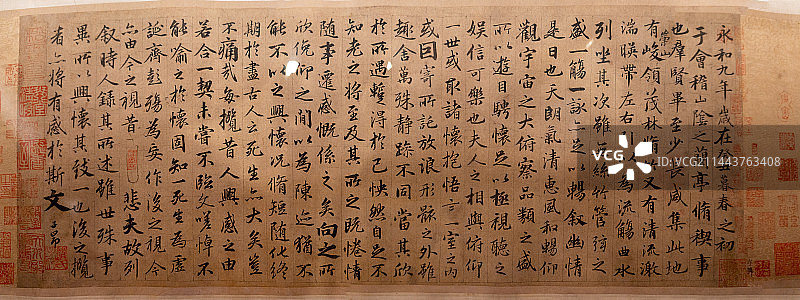 永和九年歲在癸丑暮春之初
于會稽山陰之蘭亭脩稧事
也羣賢畢至少長咸集此地
有崇山峻領茂林脩竹又有清流激
湍暎帶左右引以為流觴曲水
列坐其次雖無絲竹管弦之
盛一觴一詠亦足以暢叙幽情
是日也天朗氣清惠風和暢仰
觀宇宙之大俯察品類之盛
所以遊目騁懷足以極視聽之
娱信可樂也夫人之相與俯仰
一世或取諸懷抱悟言一室之內
或因寄所託放浪形骸之外雖
趣舍萬殊静躁不同當其欣
於所遇蹔得於己怏然自足不
知老之將至及其所之既惓情
隨事遷感慨係之矣向之所
欣俛仰之間以為陳迹猶不
能不以之興懷況脩短隨化終
期於盡古人云死生亦大矣豈
不痛哉每攬昔人興感之由
若合一契未嘗不臨文嗟悼不
能喻之於懷固知一死生為虛
誕齊彭殤為妄作後之視今
亦由今之視昔悲夫故列
叙時人錄其所述雖世殊事
異所以興懷其致一也後之攬
者亦將有感於斯文
子昂
VCG
VCG211443763408